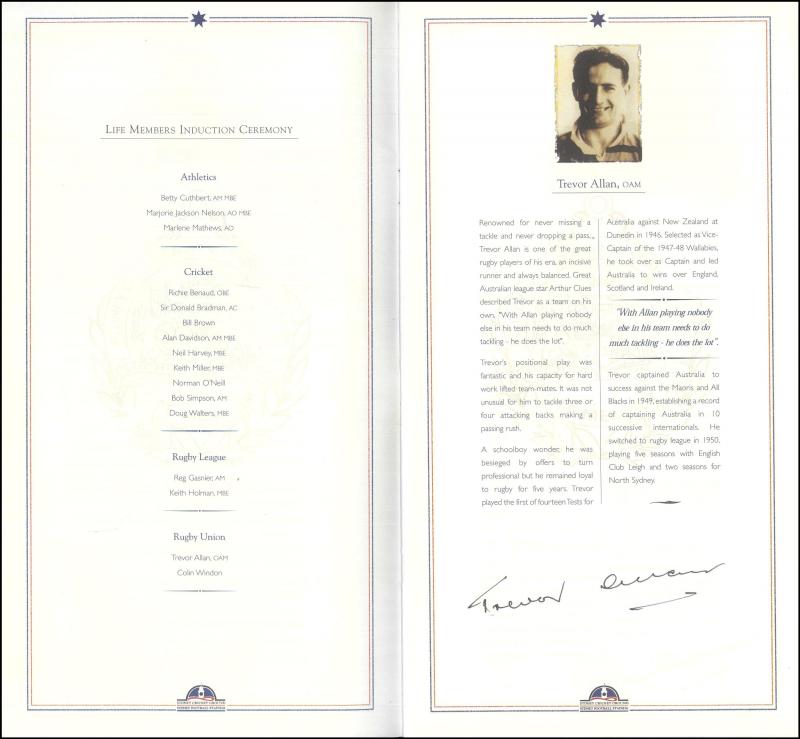 LIFE MEMBERS INDUCTION CEREMONY
Athletics
Betty Cuthbert, AM MBE
Marjorie Jackson Nelson, AO MBE
Marlene Mathews, AO
Cricket
Richie Benaud, OBE
Sir Donald Bradman, AC
Bill Brown
Alan Davidson, AM MBE
Neil Harvey, MBE
Keith Miller, MBE
Norman O'Neill
Bob Simpson, AM
Doug Walters, MBE
Rugby League
Reg Gasnier, AM
Keith Holman, MBE
Rugby Union
Trevor Allan, OAM
Colin Windon
SYDNEY CRICKET GROUND
SYDNEY FOOTBALL STADIUM
Trevor Allan, OAM
Renowned for never missing a
tackle and never dropping a pass,
Trevor Allan is one of the great
rugby players of his era, an incisive
runner and always balanced. Great
Australian league star Arthur Clues
described Trevor as a team on his
own, "With Allan playing nobody
else in his team needs to do much
tackling - he does the lot".
Trevor's positional play was
fantastic and his capacity for hard
work lifted team-mates. It was not
unusual for him to tackle three or
four attacking backs making a
passing rush.
A schoolboy wonder, he was
besieged by offers to turn
professional but he remained loyal
to rugby for five years. Trevor
played the first of fourteen Tests for
Australia against New Zealand at
Dunedin in 1946. Selected as Vice-
Captain of the 1947-48 Wallabies,
he took over as Captain and led
Australia to wins over England,
Scotland and Ireland.
"With Allan playing nobody
else in his team needs to do
much tackling - he does the lot".
Trevor captained Australia to
success against the Maoris and All
Blacks in 1949, establishing a record
of captaining Australia in 10
successive internationals. He
switched to rugby league in 1950,
playing five seasons with English
Club Leigh and two seasons for
North Sydney.
Trevor Allan
SYDNEY CRICKET GROUND
SYDNEY FOOTBALL STADIUM